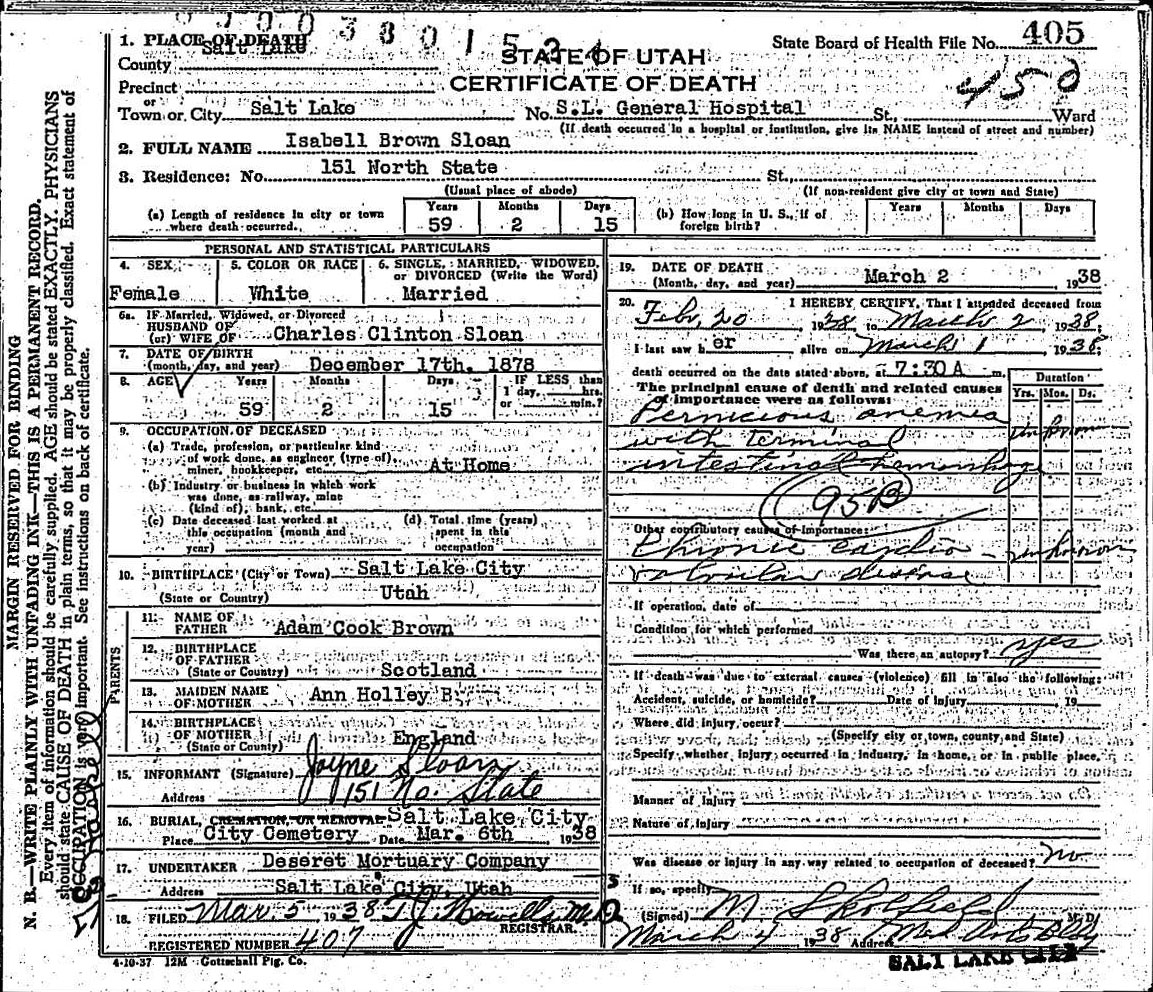 0 3 0 0 3 8 0 1 5 3
405
State Board of Health File No.
450
1. PLACE OF DEATH
Salt Lake
County
STATE OF UTAH
CERTIFICATE OF DEATH
Precinct
or
Town or City Salt Lake No. S.L. General Hospital St., Ward
(If death occurred in a hospital or institution, give its NAME instead of street and number)
2. FULL NAME Isabell Brown Sloan
3. Residence: No. 151 North State St.,
(Usual place of abode) (If non-resident give city or town and State)
(a) Length of residence in city or town where death occurred. Years 59 Months 2 Days 15
(b) How long in U. S., if of foreign birth? Years Months Days
PERSONAL AND STATISTICAL PARTICULARS
4. SEX Female
5. COLOR OR RACE White
6. SINGLE, MARRIED, WIDOWED, or DIVORCED (Write the Word) Married
6a. IF Married, Widowed, or Divorced
HUSBAND OF
(or) WIFE OF Charles Clinton Sloan
7. DATE OF BIRTH
(month, day, and year) December 17th. 1878
8. AGE Years 59 Months 2 Days 15 IF LESS than 1 day, hrs. or min.?
9. OCCUPATION OF DECEASED
(a) Trade, profession, or particular kind
of work done, as engineer (type of)
miner, bookkeeper, etc. At Home
(b) Industry or business in which work
was done, as railway, mine
(kind of), bank, etc.
(c) Date deceased last worked at
this occupation (month and
year)
(d) Total time (years)
spent in this
occupation
10. BIRTHPLACE (City or Town) Salt Lake City
(State or Country) Utah
PARENTS
11. NAME OF
FATHER Adam Cook Brown
12. BIRTHPLACE
OF FATHER
(State or Country) Scotland
13. MAIDEN NAME
OF MOTHER Ann Holley B
14. BIRTHPLACE
OF MOTHER
(State or County) England
15. INFORMANT (Signature) Jayne Sloan
Address 151 No. State
16. BURIAL, CREMATION, OR REMOVAL Salt Lake City
Place City Cemetery Date Mar. 6th 1938
17. UNDERTAKER Deseret Mortuary Company
Address Salt Lake City, Utah
18. FILED Mar. 5 1938 T.J. Howells M.D.
REGISTRAR.
REGISTERED NUMBER 407
4-10-37 12M Gottschall Ptg. Co.
19. DATE OF DEATH
(Month, day, and year) March 2 1938
20. I HEREBY CERTIFY, That I attended deceased from
Feb, 20 1938 to March 2 1938;
I last saw her alive on March 1 1938;
death occurred on the date stated above, at 7:30 A m.
The principal cause of death and related causes
of importance were as follows:
Duration
Yrs. Mos. Ds.
Pernicious anemia
with terminal unknown
intestinal hemorrhage
95B
Other contributory causes of importance:
Chronic cardio - unknown
valvular disease
If operation, date of
Condition for which performed
Was there an autopsy? yes
If death was due to external causes (violence) fill in also the following:
Accident, suicide, or homicide? Date of injury 19
Where did injury occur?
(Specify city or town, county, and State)
Specify whether injury occurred in industry, in home, or in public place.
Manner of Injury
Nature of injury
Was disease or injury in any way related to occupation of deceased? No
If so, specify
(Signed) M. Skolfield M. D.
March 4 1938 Address Med Arts Bldg
SALT LAKE CITY
MARGIN RESERVED FOR BINDING
N. B.—WRITE PLAINLY WITH UNFADING INK—THIS IS A PERMANENT RECORD.
Every item of information should be carefully supplied. AGE should be stated EXACTLY. PHYSICIANS
should state CAUSE OF DEATH in plain terms, so that it may be properly classified. Exact statement of
OCCUPATION is very important. See instructions on back of certificate.